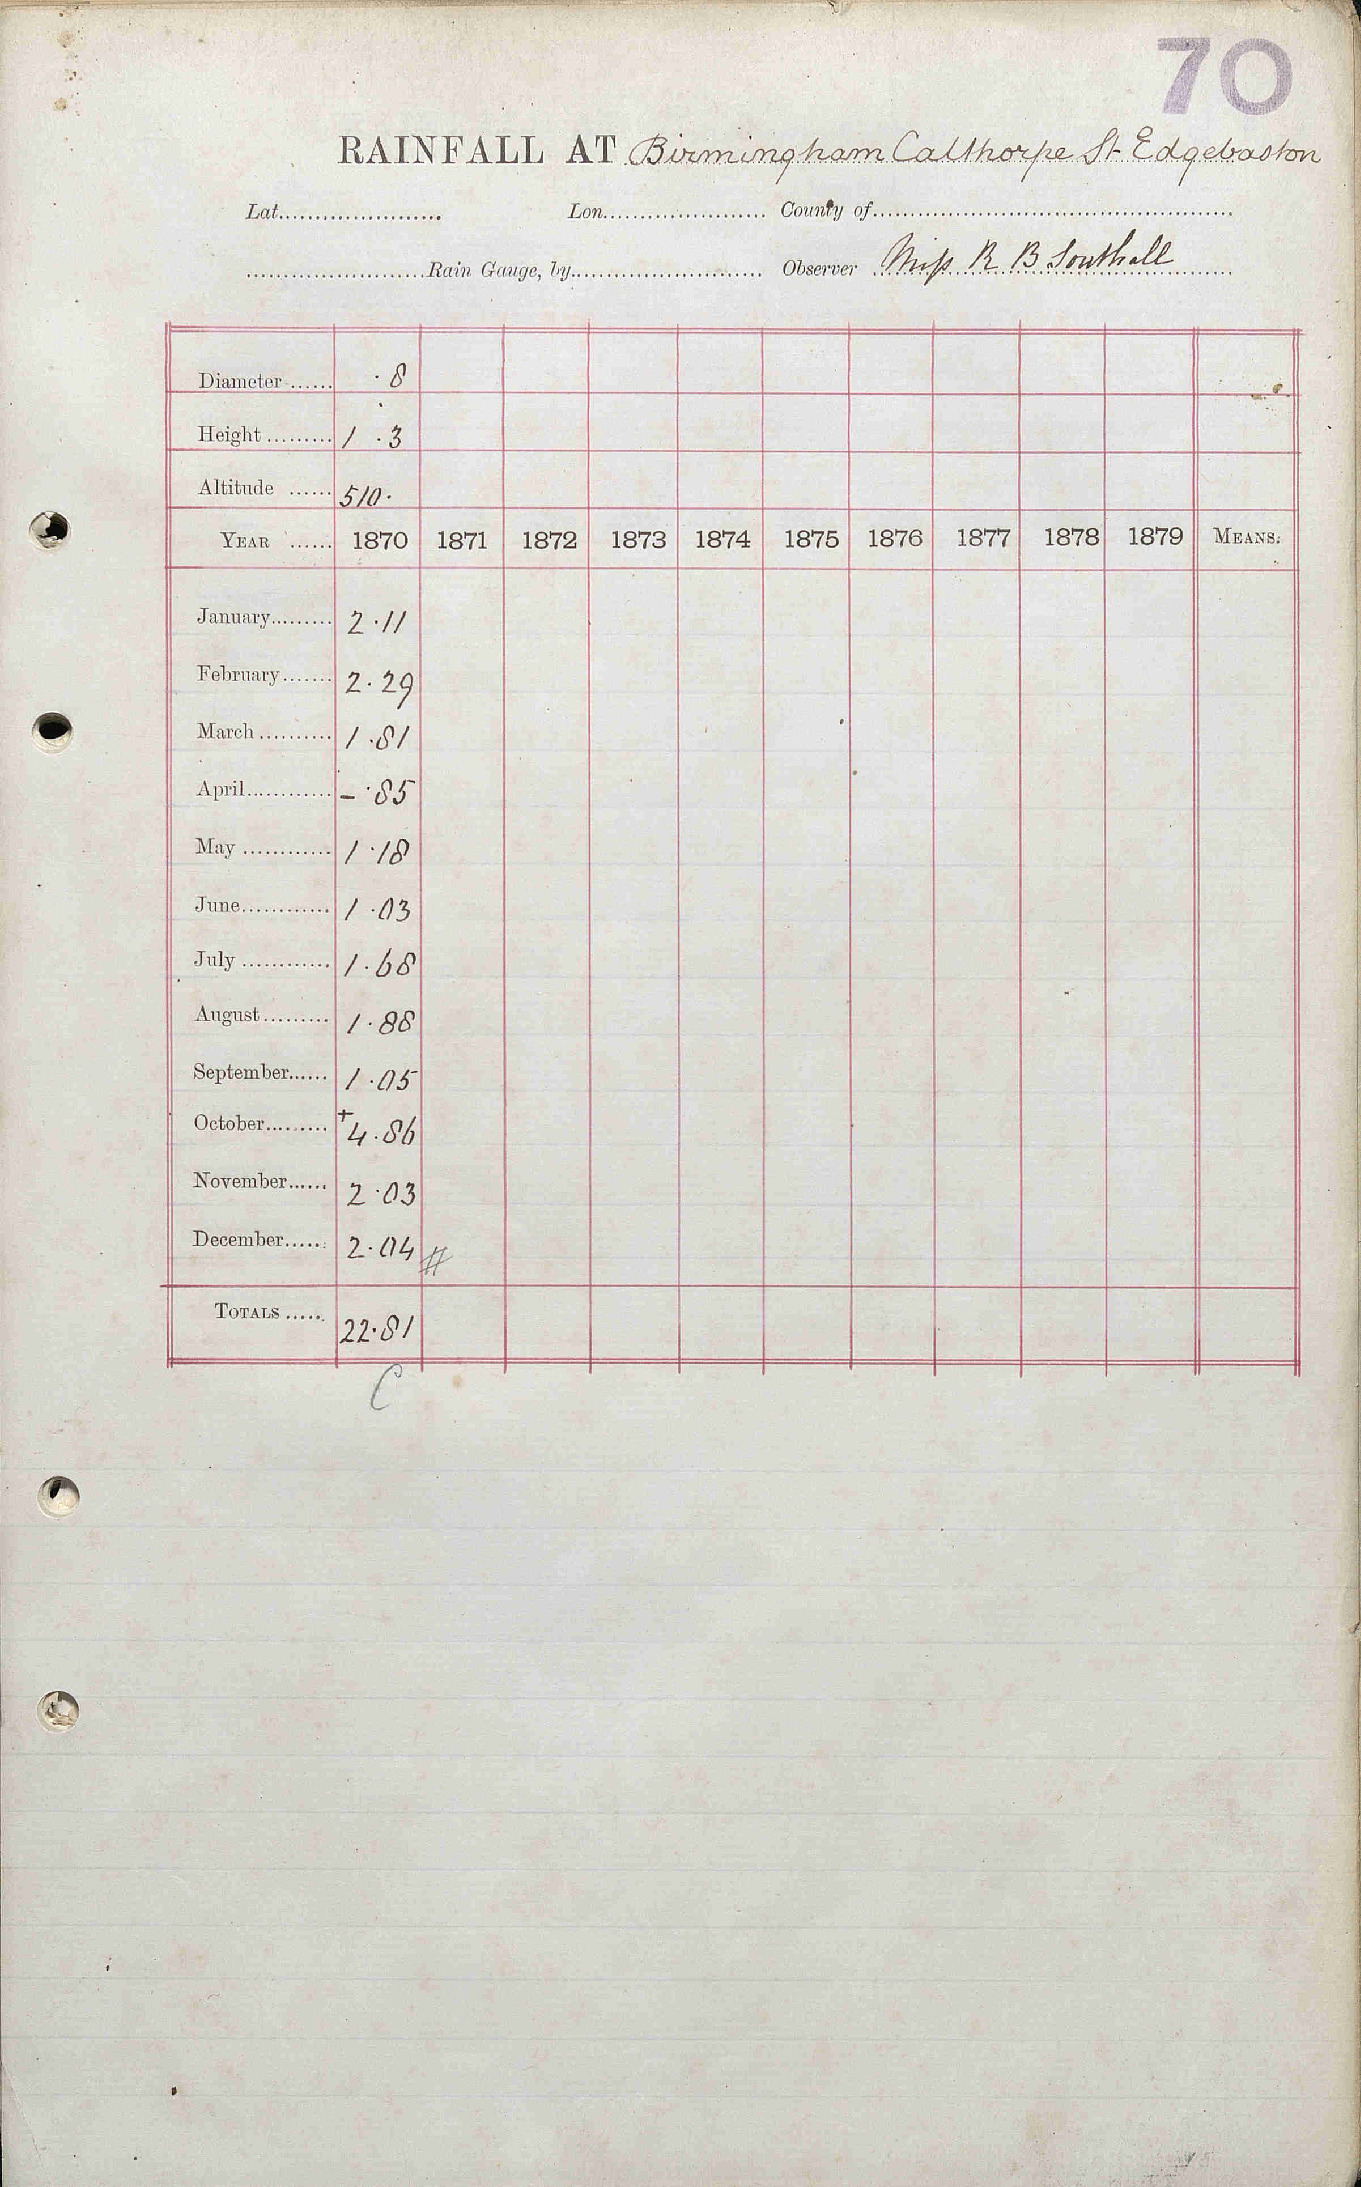 70
RAINFALL AT Birmingham Calthorpe St Edgebaston
Lat. Lon. County of
Rain Gauge, by Observer Miss R B Southall
Diameter ...... · 8
Height ......... 1 · 3
Altitude ...... 510·
YEAR ...... 1870 1871 1872 1873 1874 1875 1876 1877 1878 1879 MEANS.
January......... 2·11
February....... 2·29
March .......... 1·81
April............ - ·85
May ............ 1·18
June............ 1·03
July ............ 1·68
August......... 1·88
September...... 1·05
October......... +4·86
November...... 2·03
December...... 2·04 #
TOTALS ...... 22·81
C